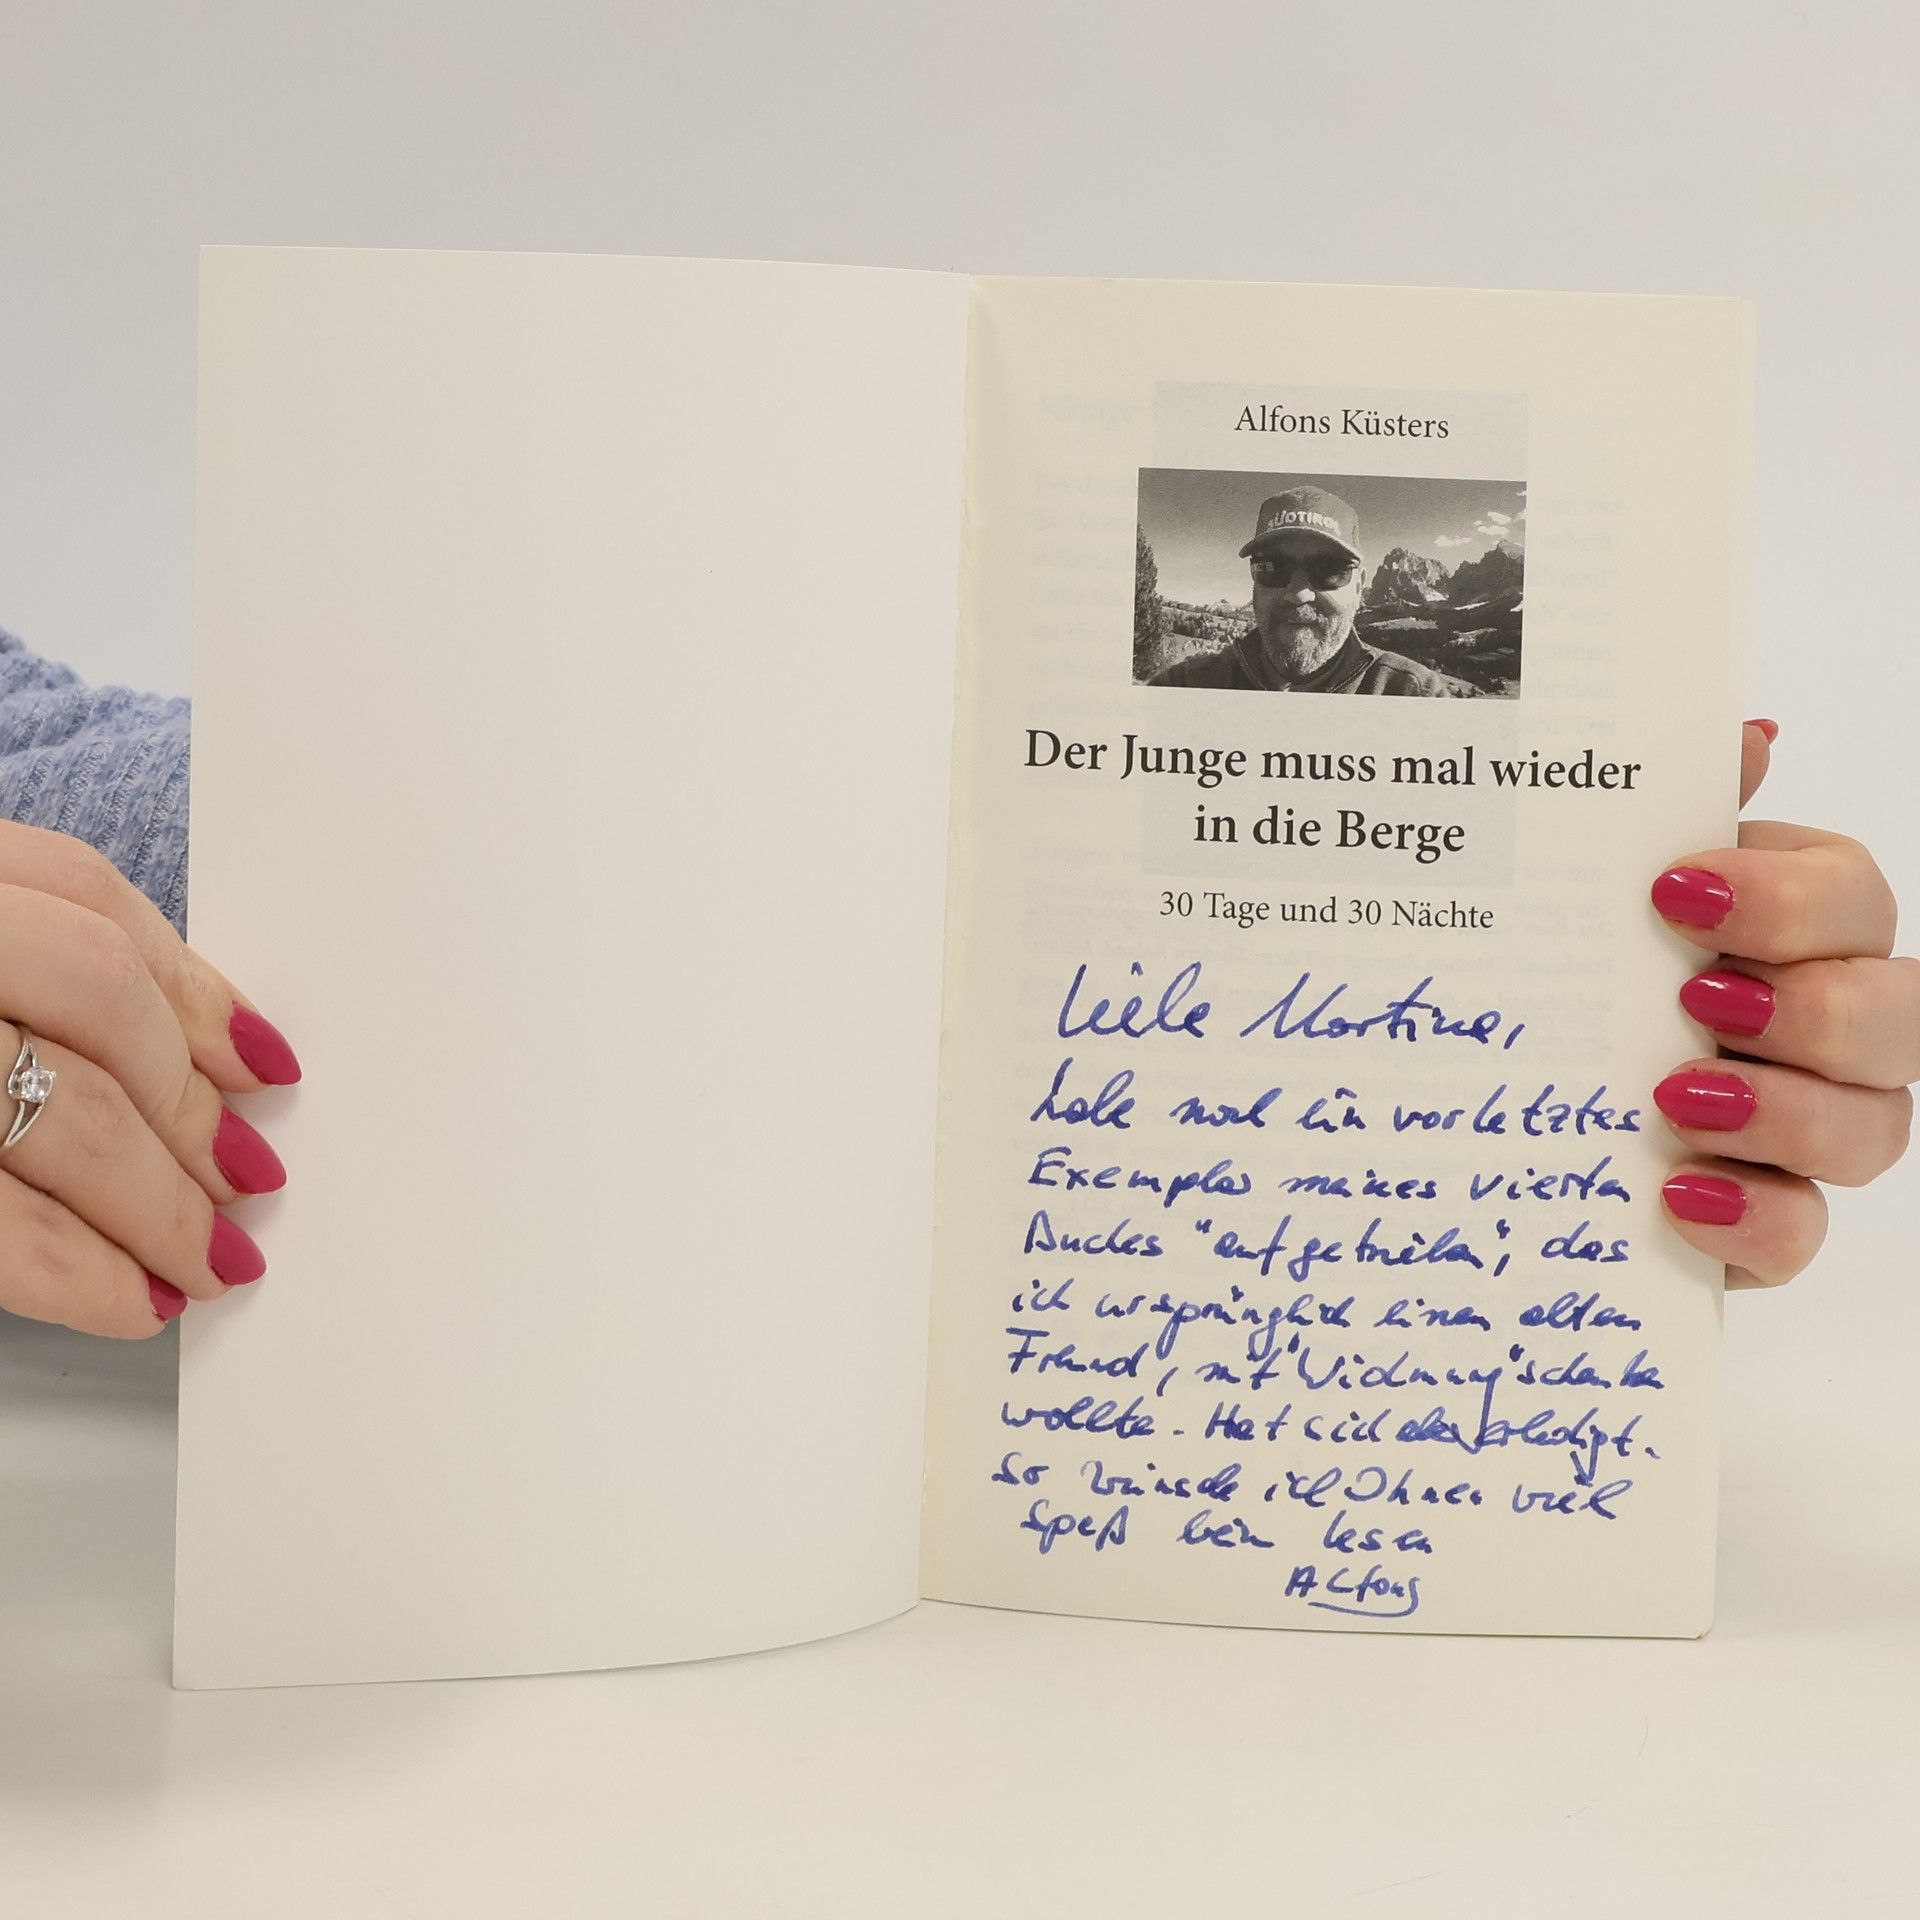 Alfons Küsters
SÜDTIROL
Der Junge muss mal wieder
in die Berge
30 Tage und 30 Nächte
Liebe Martina,
habe noch ein vorletztes
Exemplar meines vierten
Buches "aufgetrieben", das
ich ursprünglich einen alten
Freund, mit "Widmung" schenken
wollte. Hat sich aber erledigt.
So wünsche ich Ihnen viel
Spaß beim lesen
Alfons